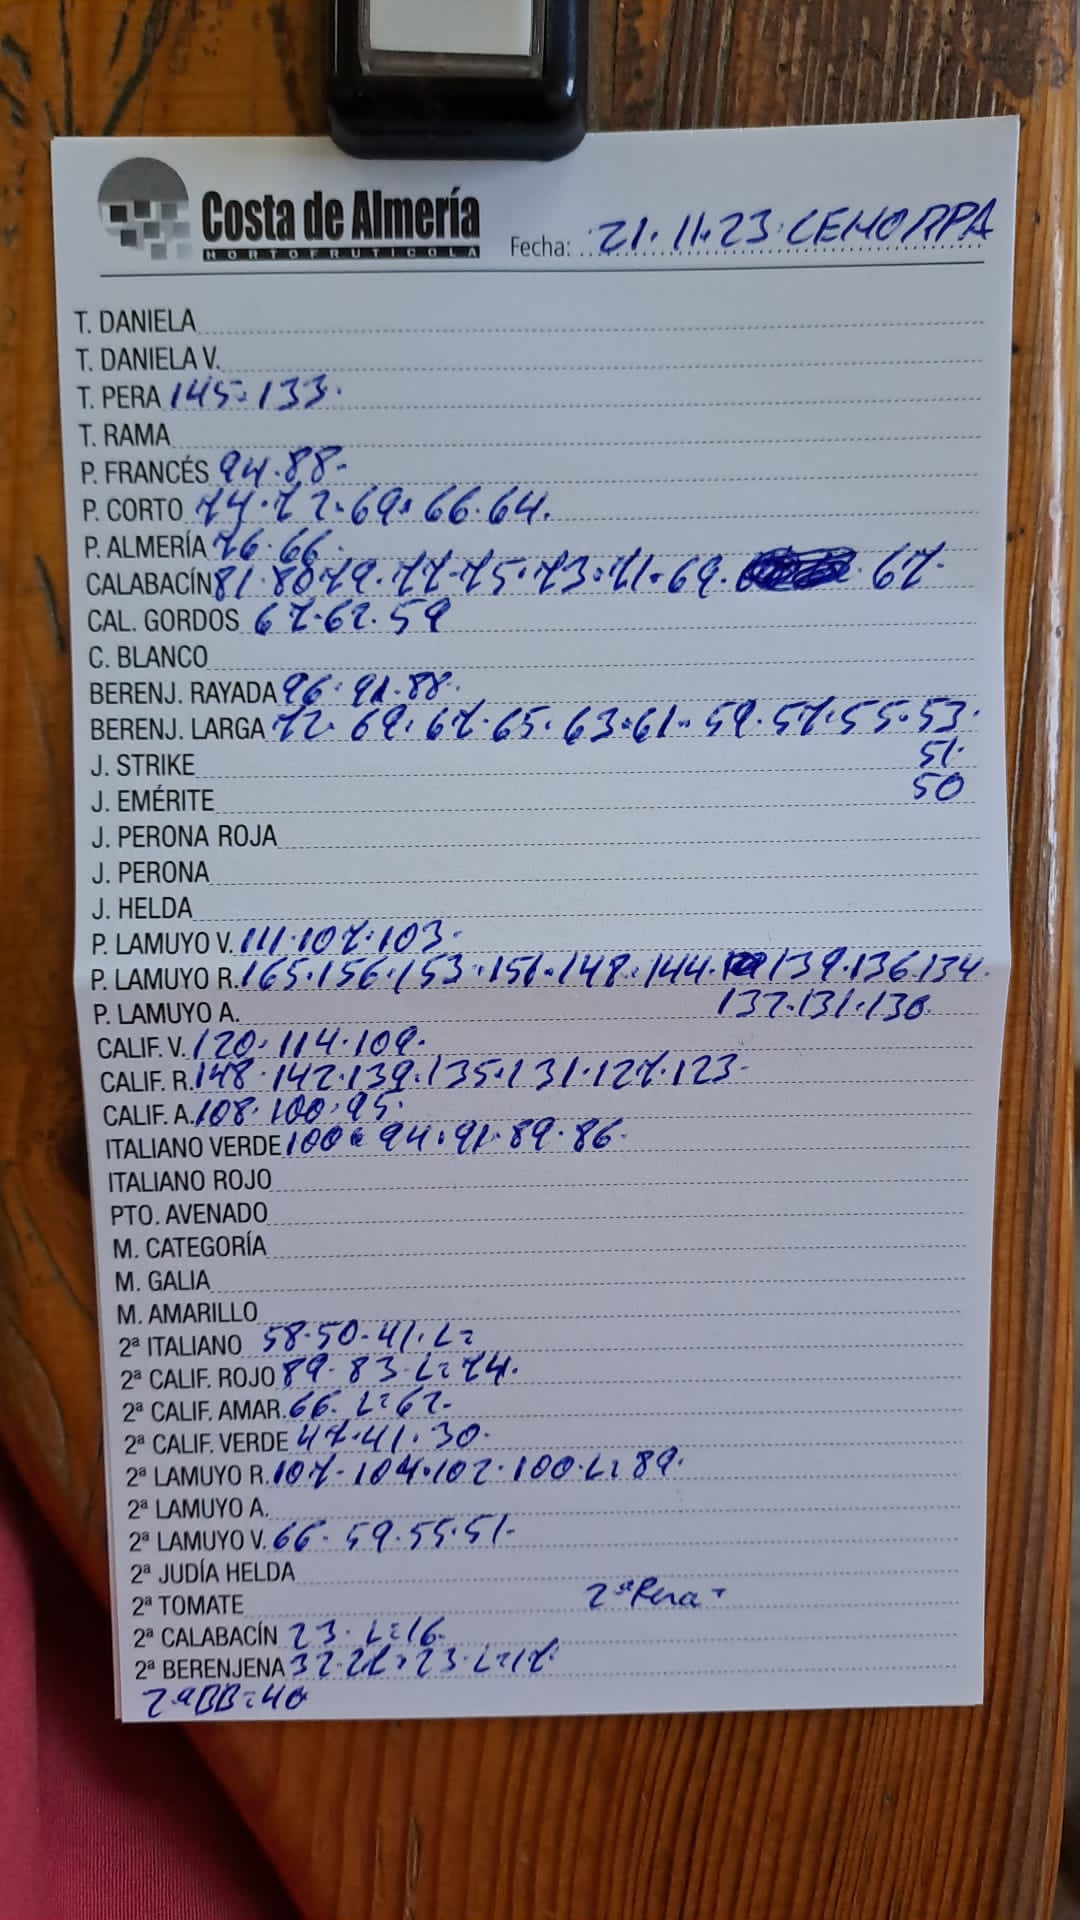 Costa de Almería
HORTOFRUTICOLA
Fecha: 21.11.23
T. DANIELA
T. DANIELA V.
T. PERA 145.133.
T. RAMA
P. FRANCÉS 94.88.
P. CORTO 74.72.69.66.64.
P. ALMERÍA 76.66.
CALABACÍN 81.80.79.77.75.73.71.69. 67.
CAL. GORDOS 67.62.59
C. BLANCO
BERENJ. RAYADA 96.91.88.
BERENJ. LARGA 72.69.67.65.63.61.59.57.55.53.
J. STRIKE 51.
J. EMÉRITE 50
J. PERONA ROJA
J. PERONA
J. HELDA
P. LAMUYO V. 111.107.103.
P. LAMUYO R. 165.156.153.151.148.144. 139.136.134.
P. LAMUYO A. 132.131.130.
CALIF. V. 120.114.109.
CALIF. R. 148.142.139.135.131.127.123.
CALIF. A. 108.100.95.
ITALIANO VERDE 100.94.91.89.86.
ITALIANO ROJO
PTO. AVENADO
M. CATEGORÍA
M. GALIA
M. AMARILLO
2ª ITALIANO 58.50.41.L=
2ª CALIF. ROJO 89.83.L=74.
2ª CALIF. AMAR. 66.L=62.
2ª CALIF. VERDE 47.41.30.
2ª LAMUYO R. 107.104.102.100.L=89.
2ª LAMUYO A.
2ª LAMUYO V. 66.59.55.51.
2ª JUDÍA HELDA
2ª TOMATE 2ª Pera
2ª CALABACÍN 23.L=16.
2ª BERENJENA 32.28.23.L=18.
2ªBB=40